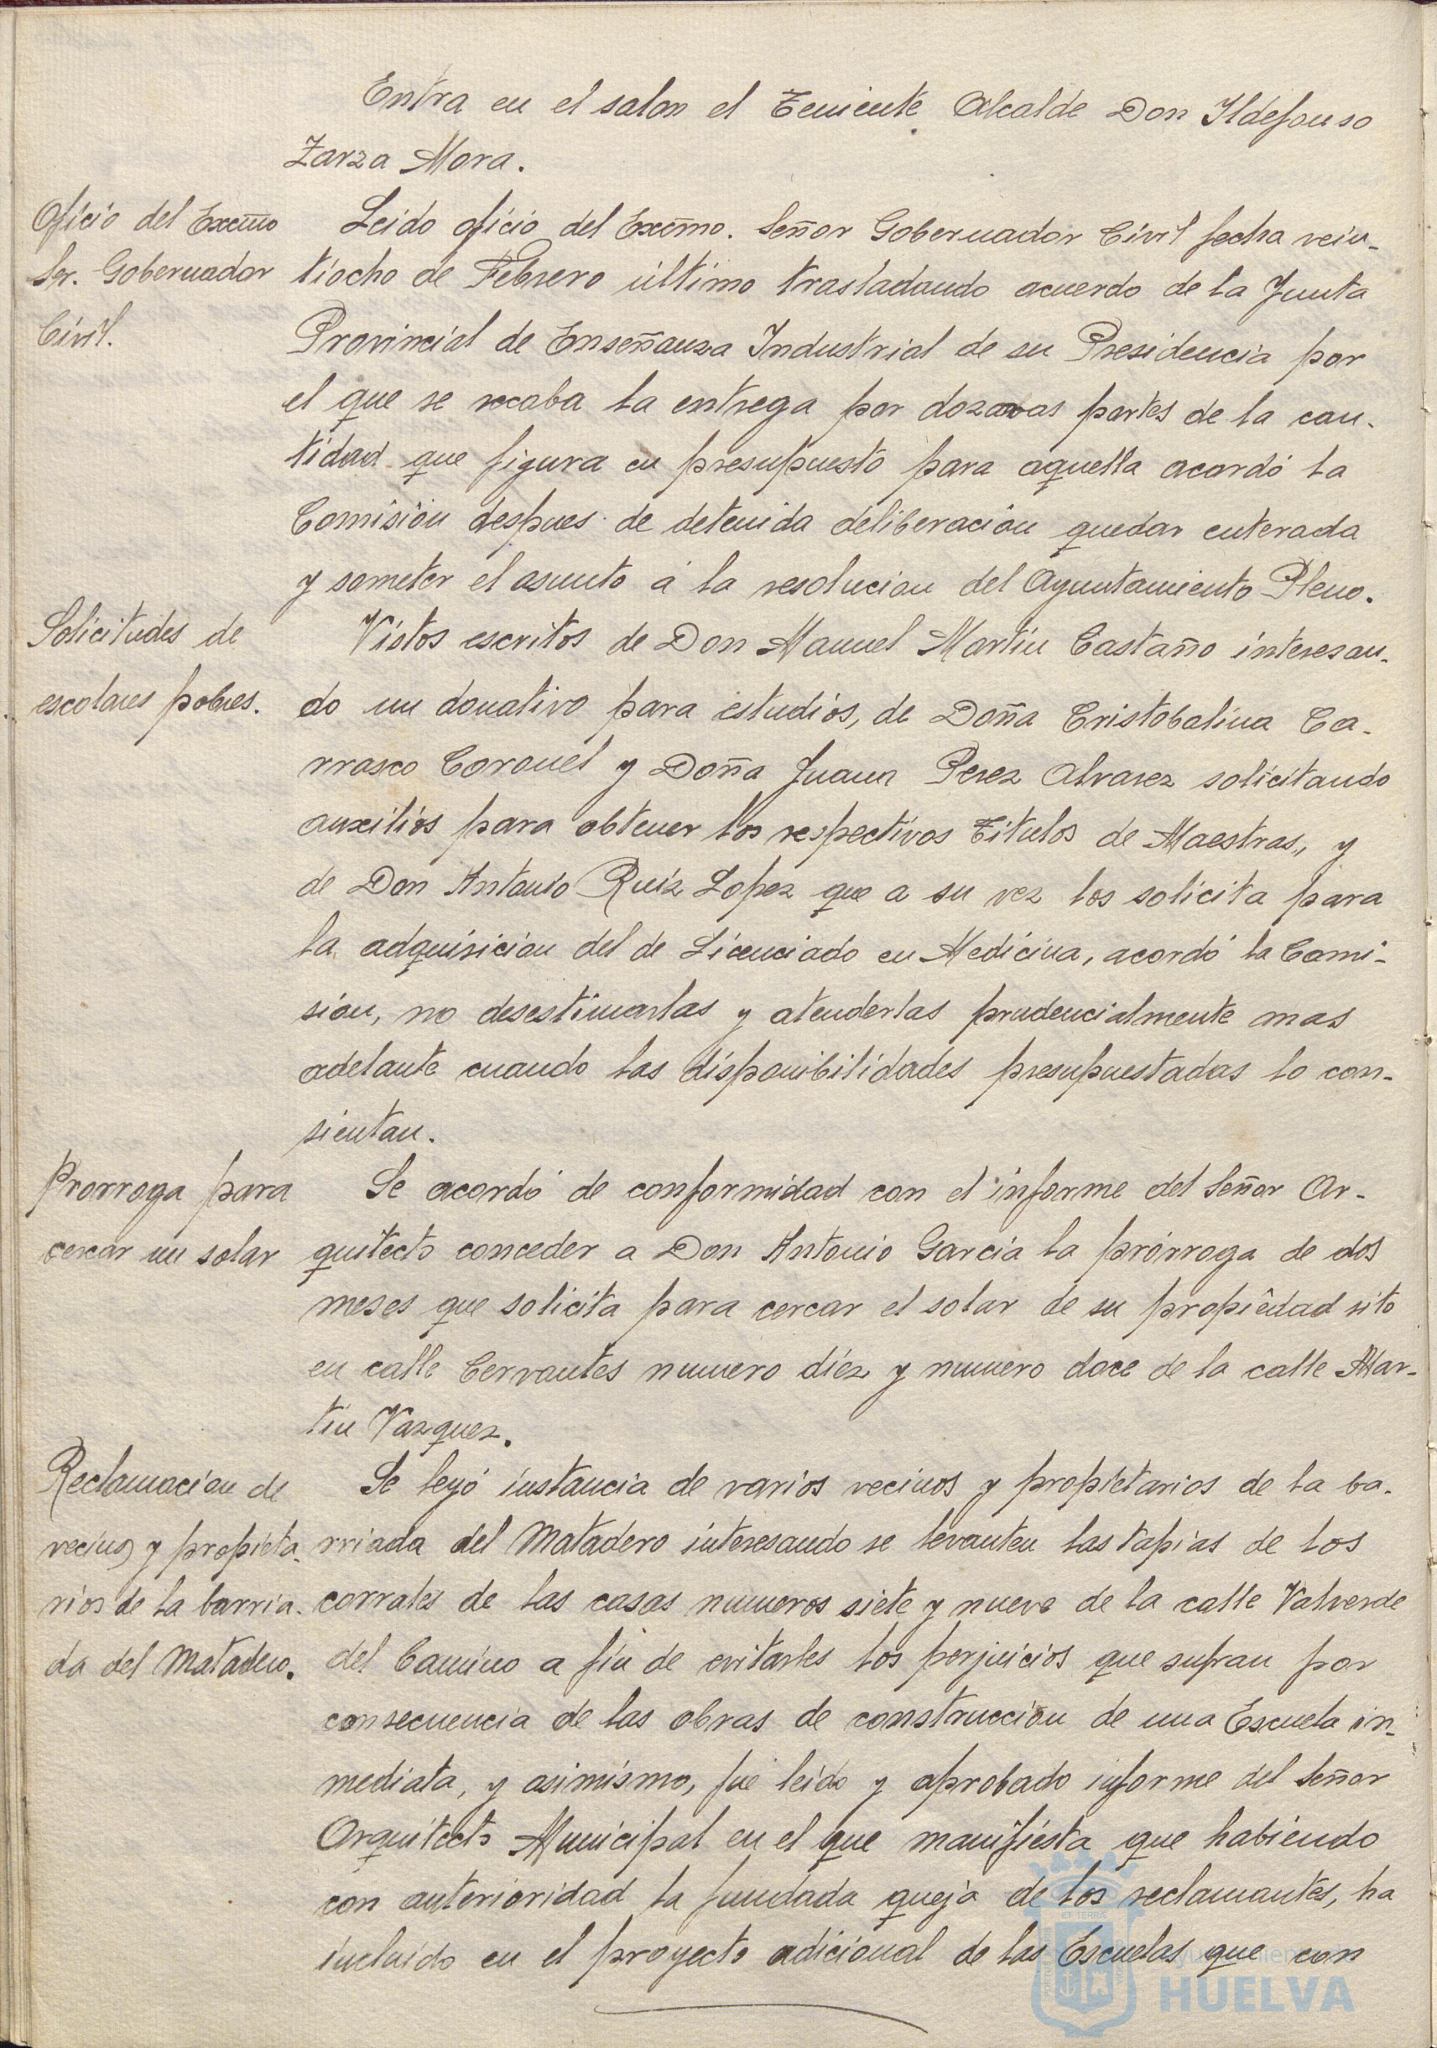 Entra en el salon el Teniente Alcalde Don Ildefonso
Zarza Mora.
Oficio del Excmo
Sr. Gobernador
Civil.
Leido oficio del Excmo. Señor Gobernador Civil fecha vein-
tiocho de Febrero último trasladando acuerdo de la Junta
Provincial de Enseñanza Industrial de su Presidencia por
el que se recaba la entrega por dozavas partes de la can-
tidad que figura en presupuesto para aquella acordó la
Comisión despues de detenida deliberación quedar enterada
y someter el asunto á la resolucion del Ayuntamiento Pleno.
Solicitudes de
escolares pobres.
Vistos escritos de Don Manuel Martin Castaño interesan-
do un donativo para estudios, de Doña Cristobalina Ca-
rrasco Coronel y Doña Juana Perez Alvarez solicitando
auxilios para obtener los respectivos Titulos de Maestras, y
de Don Antonio Ruiz Lopez que a su vez los solicita para
la adquisicion del de Licenciado en Medicina, acordó la Comi-
sión, no desestimarlas y atenderlas prudencialmente mas
adelante cuando las disponibilidades presupuestadas lo con-
sientan.
Prorroga para
cercar un solar
Se acordó de conformidad con el informe del Señor Ar-
quitecto conceder a Don Antonio Garcia la prórroga de dos
meses que solicita para cercar el solar de su propiedad sito
en calle Cervantes numero diez y numero doce de la calle Mar-
tin Vazquez.
Reclamacion de
vecinos y propieta-
rios de la barria-
da del Matadero.
Se leyó instancia de varios vecinos y propietarios de la ba-
rriada del Matadero interesando se levanten las tapias de los
corrales de las casas numeros siete y nueve de la calle Valverde
del Camino a fin de evitarles los perjuicios que sufran por
consecuencia de las obras de construccion de una Escuela in-
mediata, y asimismo, fue leido y aprobado informe del Señor
Arquitecto Municipal en el que manifiesta que habiendo
con anterioridad la fundada queja de los reclamantes, ha
incluido en el proyecto adicional de las Escuelas que con
HUELVA